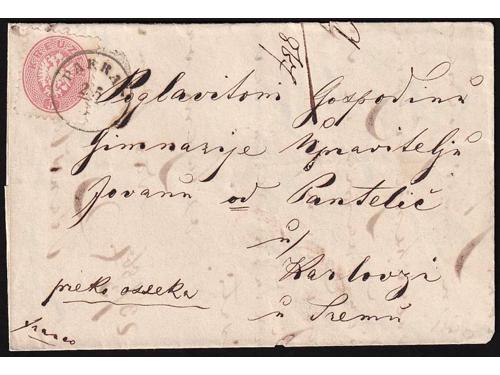 KREUZ
DARRA
25
984
Poglavitomi Gospodinu
Gimnazije Upravitelju
Jovanu od Pantelić
u/
Karlovzi
u Sremu
preko osseka
franco